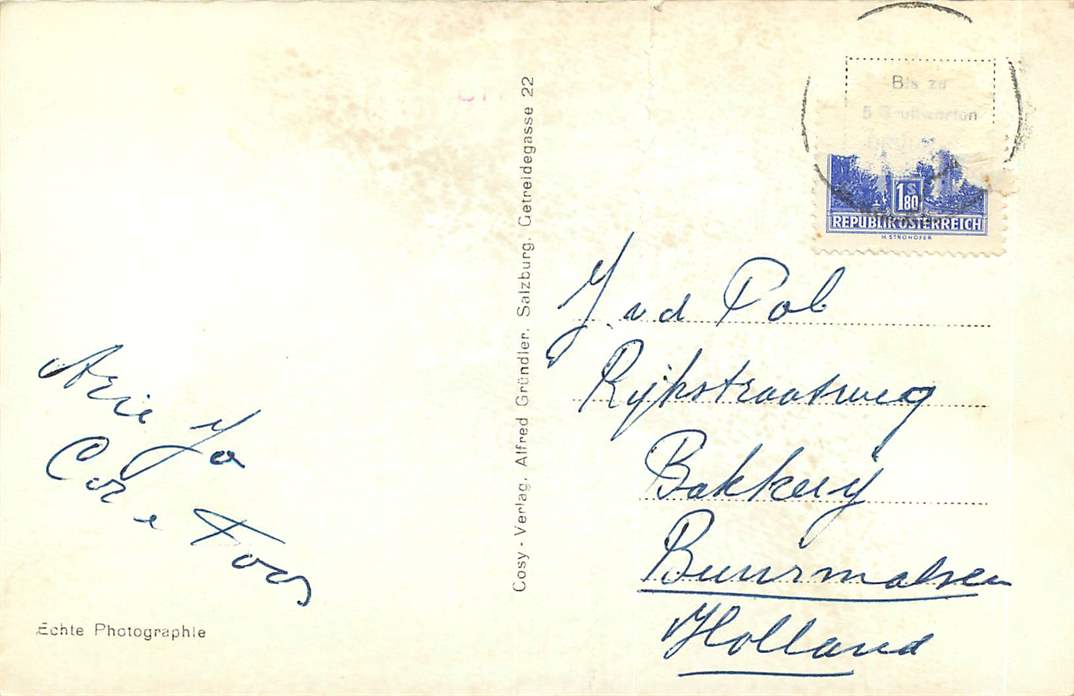 Arie Jo
Cor e Toos
Echte Photographie
Cosy - Verlag, Alfred Gründler, Salzburg, Getreidegasse 22
Bis zu
5
1.80
REPUBLIK ÖSTERREICH
H. STROHOFER
J vd Pol
Rijkstraatsweg
Bakkerij
Buurmalsen
Holland